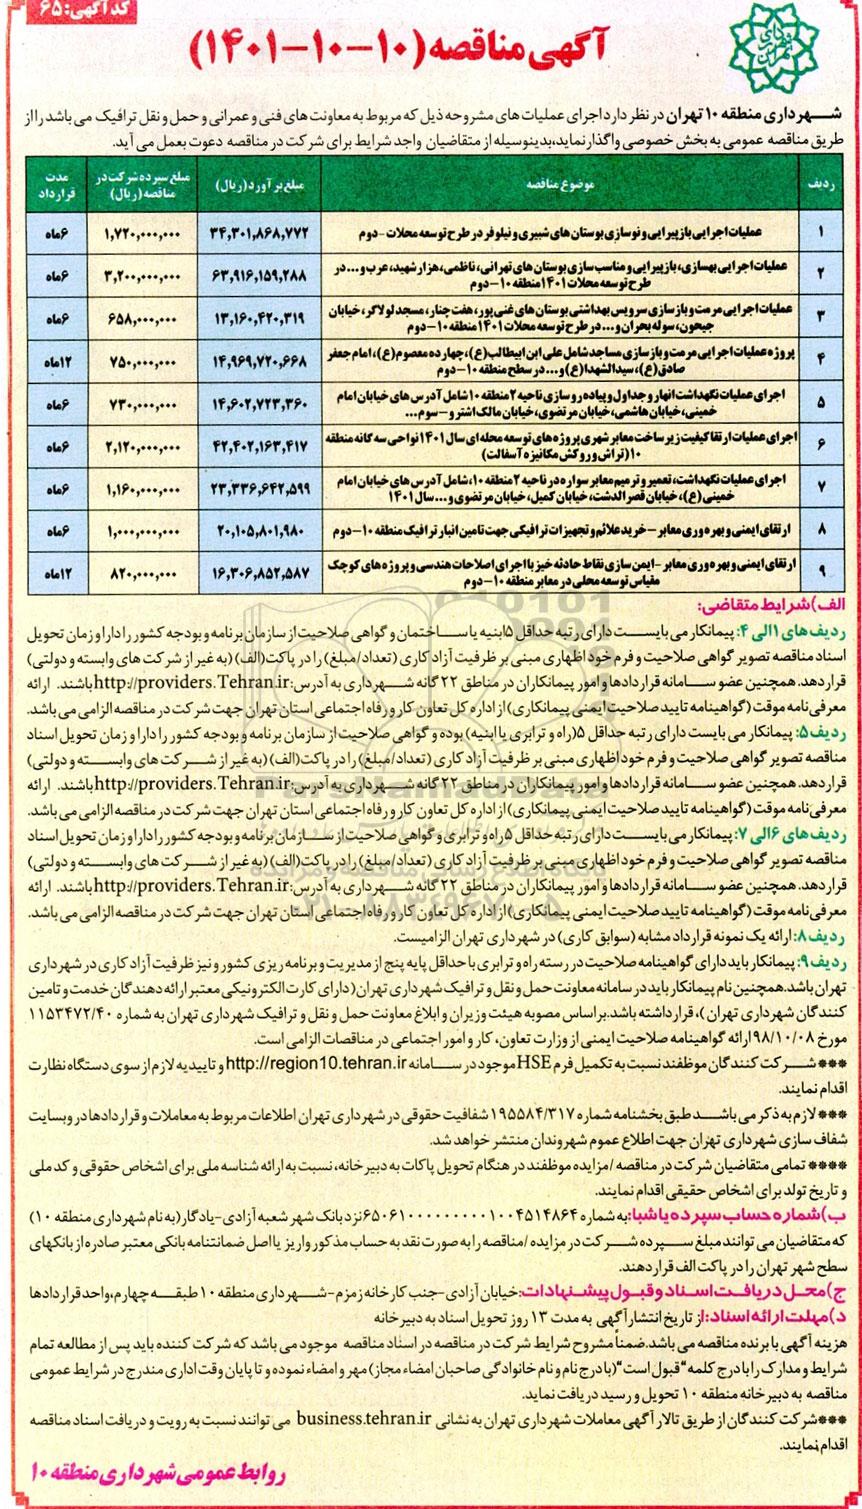 کد آگهی: ۶۵
آگهی مناقصه (۱۰-۱۰-۱۴۰۱)
شهرداری منطقه ۱۰ تهران در نظر دارد اجرای عملیات های مشروحه ذیل که مربوط به معاونت های فنی و عمرانی و حمل و نقل ترافیک می باشد را از
طریق مناقصه عمومی به بخش خصوصی واگذار نماید، بدینوسیله از متقاضیان واجد شرایط برای شرکت در مناقصه دعوت بعمل می آید.
ردیف موضوع مناقصه مبلغ برآورد (ریال) مبلغ سپرده شرکت در مناقصه (ریال) مدت قرارداد
۱ عملیات اجرایی بازپیرایی و نوسازی بوستان های شبیری و نیلوفر در طرح توسعه محلات -دوم ۳۴,۳۰۱,۸۶۸,۷۷۲ ۱,۷۲۰,۰۰۰,۰۰۰ ۶ماه
۲ عملیات اجرایی بهسازی، بازپیرایی و مناسب سازی بوستان های تهرانی، ناظمی، هزار شهید، عرب و... در
طرح توسعه محلات ۱۴۰۱ منطقه ۱۰-دوم ۶۳,۹۱۶,۱۵۹,۲۸۸ ۳,۲۰۰,۰۰۰,۰۰۰ ۶ماه
۳ عملیات اجرایی مرمت و بازسازی سرویس بهداشتی بوستان های غنی پور، هفت چنار، مسجد لولاگر، خیابان
جیحون، سوله بحران و... در طرح توسعه محلات ۱۴۰۱ منطقه ۱۰-دوم ۱۳,۱۶۰,۴۲۰,۳۱۹ ۶۵۸,۰۰۰,۰۰۰ ۶ماه
۴ پروژه عملیات اجرایی مرمت و بازسازی مساجد شامل علی ابن ابیطالب(ع)، چهارده معصوم(ع)، امام جعفر
صادق(ع)، سیدالشهدا(ع) و... در سطح منطقه ۱۰-دوم ۱۴,۹۶۹,۷۲۰,۶۶۸ ۷۵۰,۰۰۰,۰۰۰ ۱۲ماه
۵ اجرای عملیات نگهداشت انهار و جداول و پیاده روسازی ناحیه ۲ منطقه ۱۰ شامل آدرس های خیابان امام
خمینی، خیابان هاشمی، خیابان مرتضوی، خیابان مالک اشتر و -سوم... ۱۴,۶۰۲,۷۲۳,۳۶۰ ۷۳۰,۰۰۰,۰۰۰ ۶ماه
۶ اجرای عملیات ارتقا کیفیت زیرساخت معابر شهری پروژه های توسعه محله ای سال ۱۴۰۱ نواحی سه گانه منطقه
۱۰ (تراش و روکش مکانیزه آسفالت) ۴۲,۴۰۲,۱۶۳,۴۱۷ ۲,۱۲۰,۰۰۰,۰۰۰ ۶ماه
۷ اجرای عملیات نگهداشت، تعمیر و ترمیم معابر سواره در ناحیه ۲ منطقه ۱۰، شامل آدرس های خیابان امام
خمینی(ع)، خیابان قصرالدشت، خیابان کمیل، خیابان مرتضوی و... سال ۱۴۰۱ ۲۳,۳۳۶,۶۴۲,۵۹۹ ۱,۱۶۰,۰۰۰,۰۰۰ ۶ماه
۸ ارتقای ایمنی و بهره وری معابر - خرید علائم و تجهیزات ترافیکی جهت تامین انبار ترافیک منطقه ۱۰-دوم ۲۰,۱۰۵,۸۰۱,۹۸۰ ۱,۰۰۰,۰۰۰,۰۰۰ ۶ماه
۹ ارتقای ایمنی و بهره وری معابر - ایمن سازی نقاط حادثه خیز با اجرای اصلاحات هندسی و پروژه های کوچک
مقیاس توسعه محلی در معابر منطقه ۱۰-دوم ۱۶,۳۰۶,۸۵۲,۵۸۷ ۸۲۰,۰۰۰,۰۰۰ ۱۲ماه
الف) شرایط متقاضی:
ردیف های ۱ الی ۴: پیمانکار می بایست دارای رتبه حداقل ۵ ابنیه یا ساختمان و گواهی صلاحیت از سازمان برنامه و بودجه کشور را دارا و زمان تحویل
اسناد مناقصه تصویر گواهی صلاحیت و فرم خوداظهاری مبنی بر ظرفیت آزاد کاری (تعداد/مبلغ) را در پاکت (الف) (به غیر از شرکت های وابسته و دولتی)
قرار دهد. همچنین عضو سامانه قراردادها و امور پیمانکاران در مناطق ۲۲ گانه شهرداری به آدرس: http://providers.Tehran.ir باشند. ارائه
معرفی نامه موقت (گواهینامه تایید صلاحیت ایمنی پیمانکاری) از اداره کل تعاون کار و رفاه اجتماعی استان تهران جهت شرکت در مناقصه الزامی می باشد.
ردیف ۵: پیمانکار می بایست دارای رتبه حداقل ۵ (راه و ترابری یا ابنیه) بوده و گواهی صلاحیت از سازمان برنامه و بودجه کشور را دارا و زمان تحویل اسناد
مناقصه تصویر گواهی صلاحیت و فرم خوداظهاری مبنی بر ظرفیت آزاد کاری (تعداد/مبلغ) را در پاکت (الف) (به غیر از شرکت های وابسته و دولتی)
قرار دهد. همچنین عضو سامانه قراردادها و امور پیمانکاران در مناطق ۲۲ گانه شهرداری به آدرس: http://providers.Tehran.ir باشند. ارائه
معرفی نامه موقت (گواهینامه تایید صلاحیت ایمنی پیمانکاری) از اداره کل تعاون کار و رفاه اجتماعی استان تهران جهت شرکت در مناقصه الزامی می باشد.
ردیف های ۶ الی ۷: پیمانکار می بایست دارای رتبه حداقل ۵ راه و ترابری و گواهی صلاحیت از سازمان برنامه و بودجه کشور را دارا و زمان تحویل اسناد
مناقصه تصویر گواهی صلاحیت و فرم خوداظهاری مبنی بر ظرفیت آزاد کاری (تعداد/مبلغ) را در پاکت (الف) (به غیر از شرکت های وابسته و دولتی)
قرار دهد. همچنین عضو سامانه قراردادها و امور پیمانکاران در مناطق ۲۲ گانه شهرداری به آدرس: http://providers.Tehran.ir باشند. ارائه
معرفی نامه موقت (گواهینامه تایید صلاحیت ایمنی پیمانکاری) از اداره کل تعاون کار و رفاه اجتماعی استان تهران جهت شرکت در مناقصه الزامی می باشد.
ردیف ۸: ارائه یک نمونه قرارداد مشابه (سوابق کاری) در شهرداری تهران الزامیست.
ردیف ۹: پیمانکار باید دارای گواهینامه صلاحیت در رسته راه و ترابری با حداقل پایه پنج از مدیریت و برنامه ریزی کشور و نیز ظرفیت آزاد کاری در شهرداری
تهران باشد. همچنین نام پیمانکار باید در سامانه معاونت حمل و نقل و ترافیک شهرداری تهران (دارای کارت الکترونیکی معتبر ارائه دهندگان خدمت و تامین
کنندگان شهرداری تهران)، قرار داشته باشد. براساس مصوبه هیئت وزیران و ابلاغ معاونت حمل و نقل و ترافیک شهرداری تهران به شماره ۱۱۵۳۴۷۲/۴۰
مورخ ۹۸/۱۰/۰۸ ارائه گواهینامه صلاحیت ایمنی از وزارت تعاون، کار و امور اجتماعی در مناقصات الزامی است.
*** شرکت کنندگان موظفند نسبت به تکمیل فرم HSE موجود در سامانه http://region10.tehran.ir و تاییدیه لازم از سوی دستگاه نظارت
اقدام نمایند.
*** لازم به ذکر می باشد طبق بخشنامه شماره ۱۹۵۵۸۴/۳۱۷ شفافیت حقوقی در شهرداری تهران اطلاعات مربوط به معاملات و قراردادها در وبسایت
شفاف سازی شهرداری تهران جهت اطلاع عموم شهروندان منتشر خواهد شد.
**** تمامی متقاضیان شرکت در مناقصه / مزایده موظفند در هنگام تحویل پاکات به دبیرخانه، نسبت به ارائه شناسه ملی برای اشخاص حقوقی و کد ملی
و تاریخ تولد برای اشخاص حقیقی اقدام نمایند.
ب) شماره حساب سپرده یا شبا: به شماره ۶۵۰۶۱۰۰۰۰۰۰۰۰۰۰۱۰۰۴۵۱۴۸۶۴ نزد بانک شهر شعبه آزادی-یادگار (به نام شهرداری منطقه ۱۰)
که متقاضیان می توانند مبلغ سپرده شرکت در مزایده / مناقصه را به صورت نقد به حساب مذکور واریز یا اصل ضمانتنامه بانکی معتبر صادره از بانکهای
سطح شهر تهران را در پاکت الف قرار دهند.
ج) محل دریافت اسناد و قبول پیشنهادات: خیابان آزادی-جنب کارخانه زمزم-شهرداری منطقه ۱۰ طبقه چهارم، واحد قراردادها
د) مهلت ارائه اسناد: از تاریخ انتشار آگهی به مدت ۱۳ روز تحویل اسناد به دبیرخانه
هزینه آگهی با برنده مناقصه می باشد. ضمناً مشروح شرایط شرکت در مناقصه در اسناد مناقصه موجود می باشد که شرکت کننده باید پس از مطالعه تمام
شرایط و مدارک را با درج کلمه "قبول است" (با درج نام و نام خانوادگی صاحبان امضاء مجاز) مهر و امضاء نموده و تا پایان وقت اداری مندرج در شرایط عمومی
مناقصه به دبیرخانه منطقه ۱۰ تحویل و رسید دریافت نماید.
*** شرکت کنندگان از طریق تالار آگهی معاملات شهرداری تهران به نشانی business.tehran.ir می توانند نسبت به رویت و دریافت اسناد مناقصه
اقدام نمایند.
روابط عمومی شهرداری منطقه ۱۰